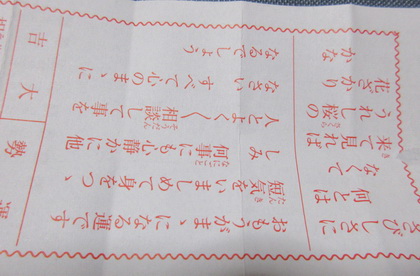 さびしさに
何とは
なくて
来て見れば
うれし桜の
花ざかり
かな
運勢 大吉
おもうがまゝになる運です
短気をいましめて身をつゝ
しみ何事にも心静かに他
人とよく〳〵相談して事を
なさい すべて心のまゝに
なるでしょう